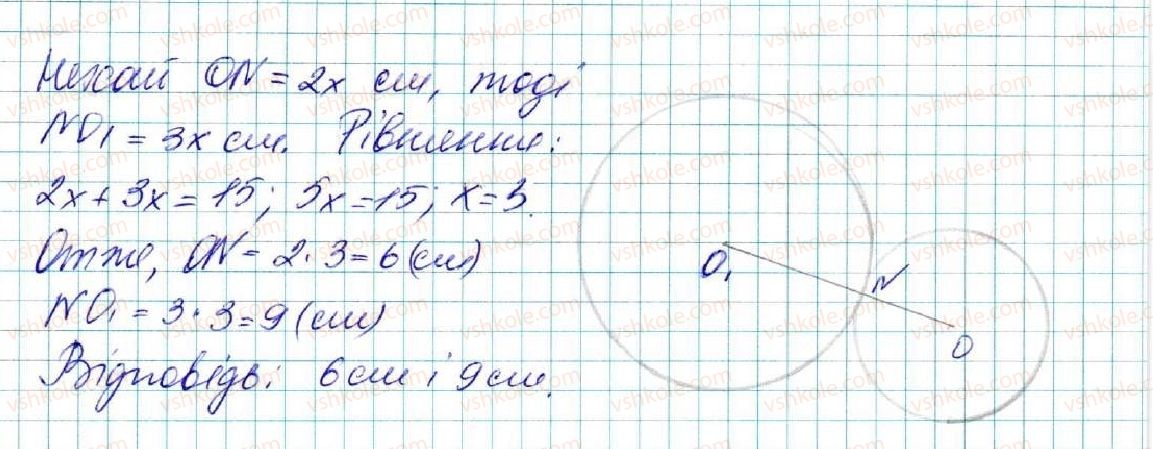 Нехай ON = 2x см, тоді
NO₁ = 3x см. Рівняння:
2x + 3x = 15; 5x = 15; x = 3.
Отже, ON = 2 · 3 = 6 (см)
NO₁ = 3 · 3 = 9 (см)
Відповідь: 6 см і 9 см.
O₁
N
O
vshkole.com